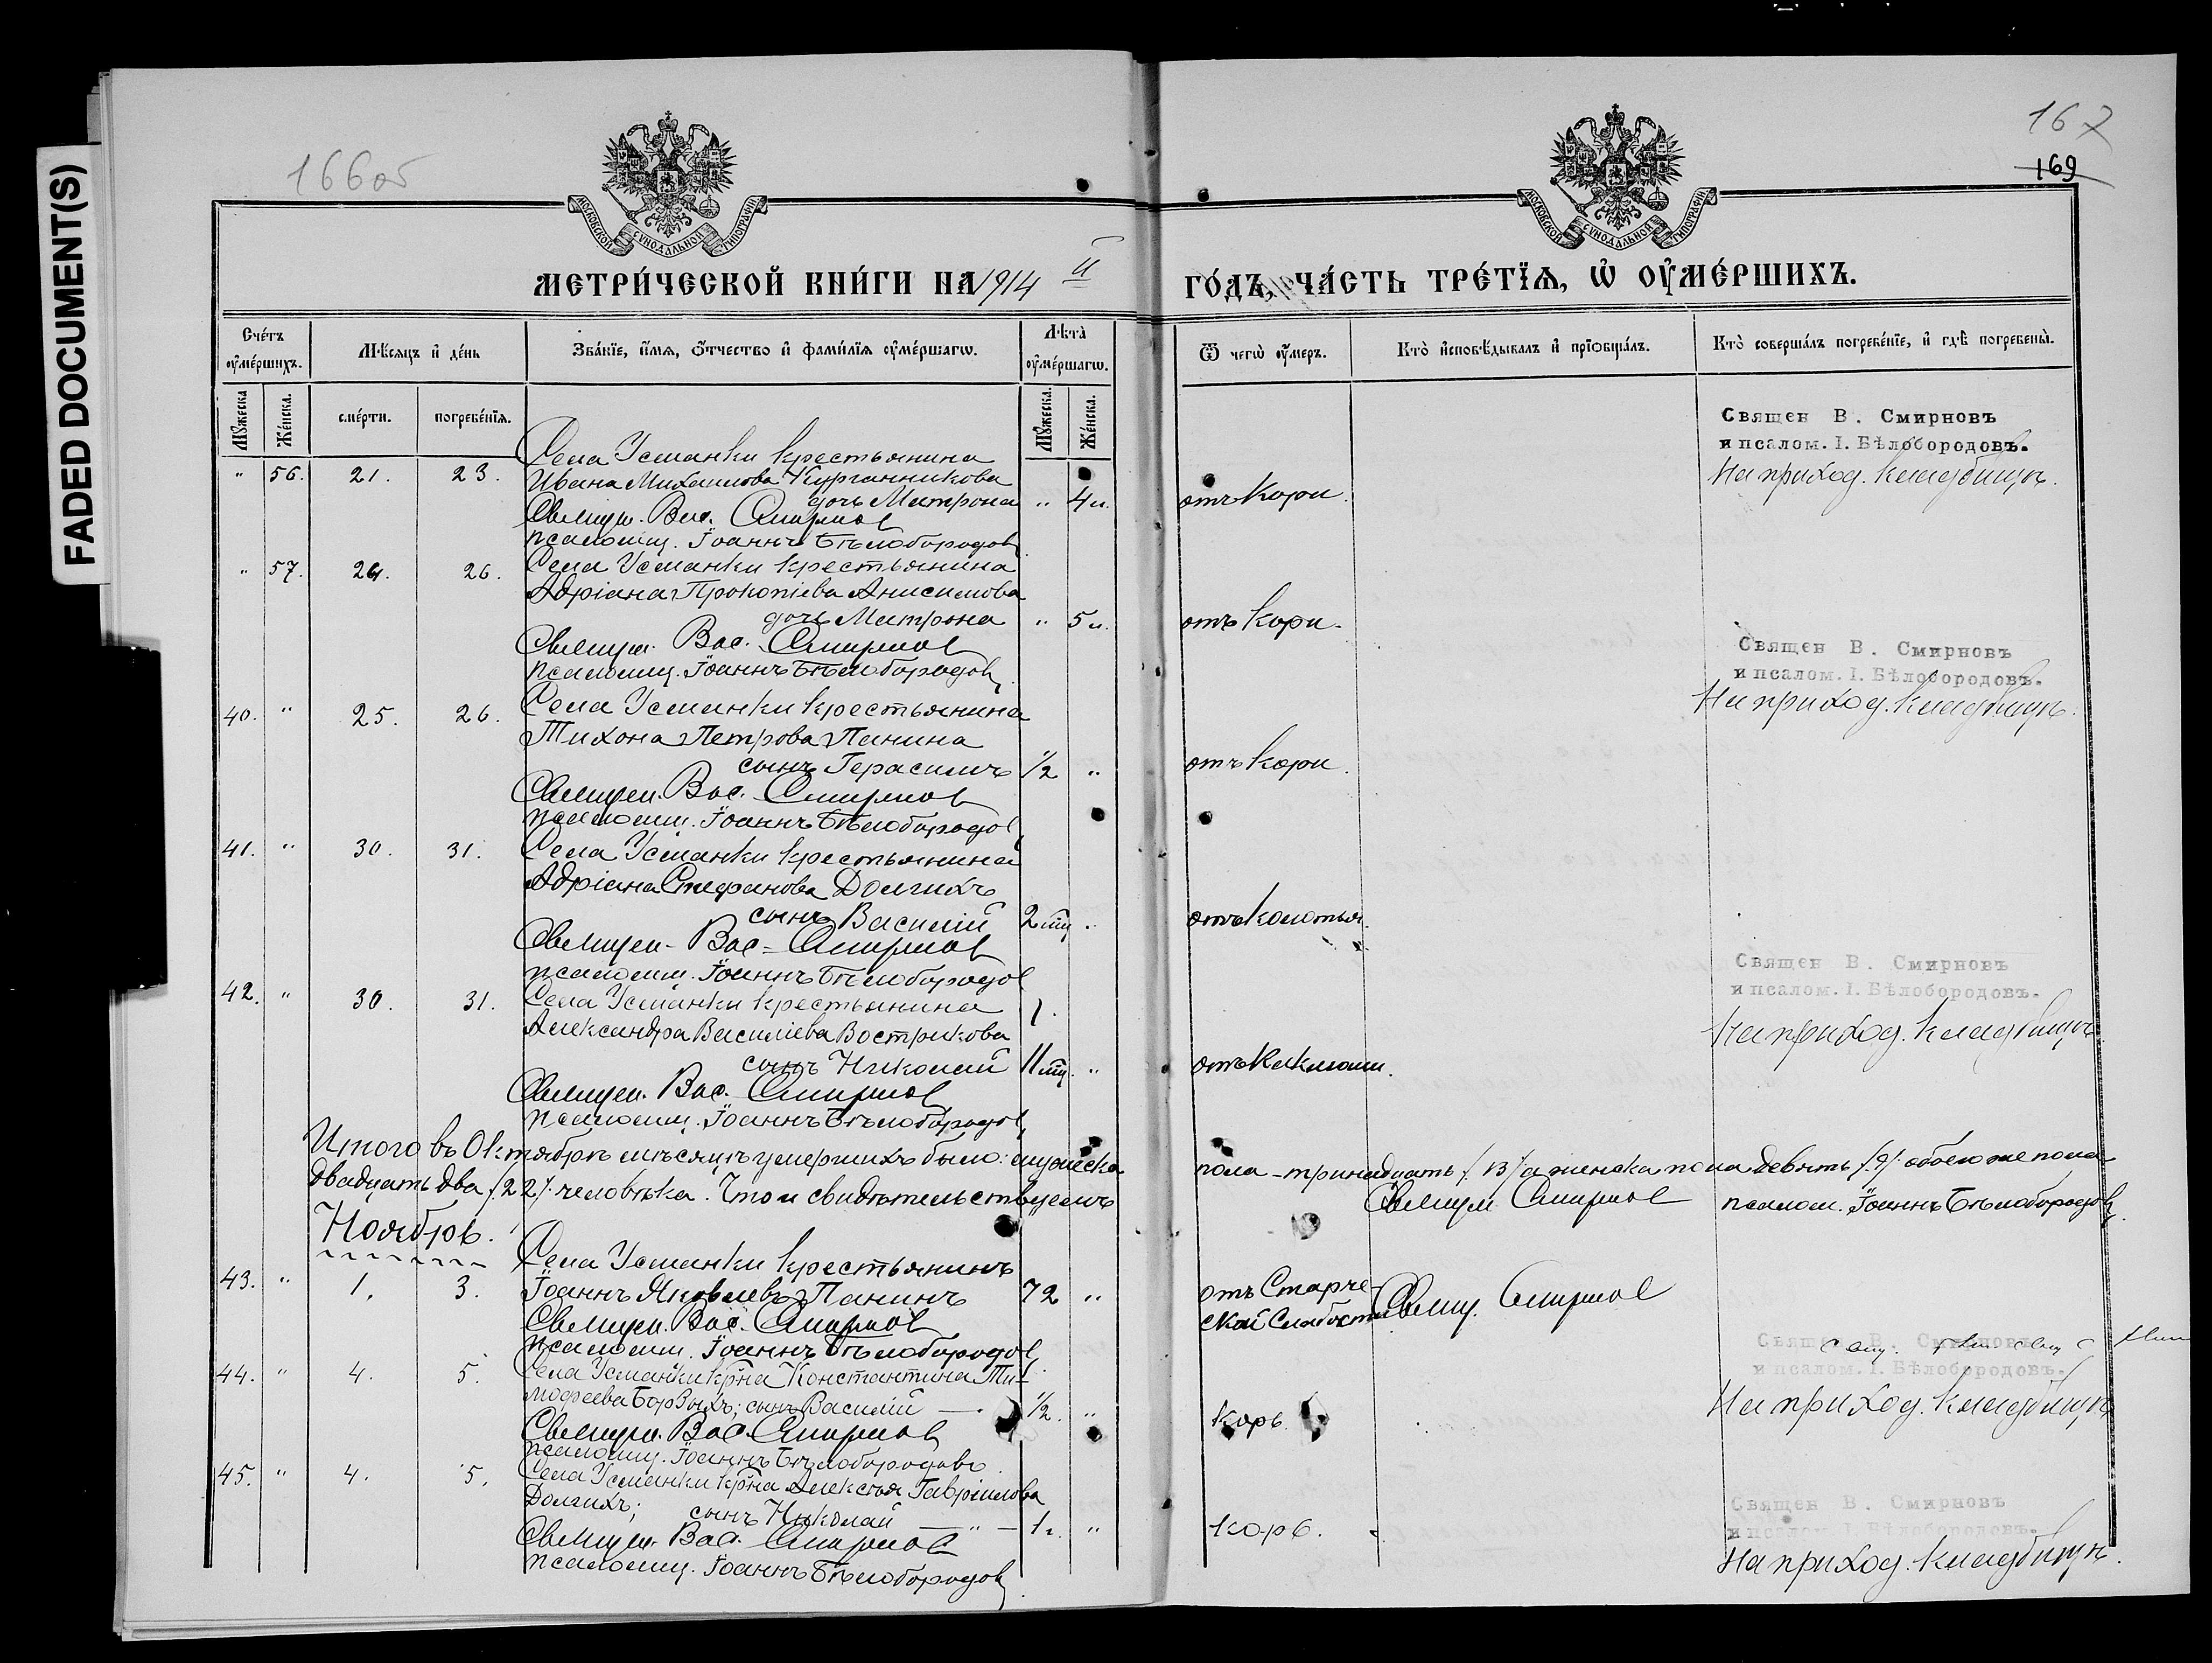 FADED DOCUMENT(S)
166об
167
169
МОСКОВСКОЙ СѴНОДАЛЬНОЙ ТИПОГРАФІИ
МОСКОВСКОЙ СѴНОДАЛЬНОЙ ТИПОГРАФІИ
МЕТРИ́ЧЕСКОЙ КНИ́ГИ НА 1914 й ГО́ДЪ, ЧА́СТЬ ТРЕ́ТЇѦ, Ѡ҆ ОУ҆МЕ́РШИХЪ.
Сче́тъ оу҆ме́ршихъ.
Мѣ́сяцъ и҆ де́нь
Зва́нїе, и҆́мѧ, ѻ҆́тчество и҆ фами́лїѧ оу҆ме́ршагѡ.
Лѣ́та̀ оу҆ме́ршагѡ.
Ѿ чегѡ̀ оу҆́меръ.
Кто̀ и҆сповѣ́дывалъ и҆ прїѡбща́лъ.
Кто̀ соверша́лъ погребе́нїе, и҆ гдѣ̀ погребены̀.
Мꙋ́жеска
Же́нска.
сме́рти.
погребе́нїѧ.
Мꙋ́жеска.
Же́нска.
Села Усманки крестьянина
" 56. 21. 23. Ивана Михаилова Курганникова
дочь Матрона " 4 м. отъ Кори.
Священ. Вас. Смирнов
псаломщ. Іоаннъ Бѣлобородов
Священ В. Смирновъ
и псалом. І. Бѣлобородовъ.
На приход. кладбищѣ.
" 57. 24. 26. Села Усманки крестьянина
Адріана Прокопіева Анисимова
дочь Матрона " 5 м. отъ кори.
Священ. Вас. Смирнов
псаломщ. Іоаннъ Бѣлобородов
Священ В. Смирновъ
и псалом. І. Бѣлобородовъ.
На приход. кладбищѣ.
40. " 25. 26. Села Усманки крестьянина
Тихона Петрова Панина
сынъ Герасимъ 1/2 " отъ кори.
Священ. Вас. Смирнов
псаломщ. Іоаннъ Бѣлобородов
41. " 30. 31. Села Усманки крестьянина
Адріана Стефанова Долгихъ
сынъ Василій 2 " отъ колотья.
Священ. Вас. Смирнов
псаломщ. Іоаннъ Бѣлобородов
Священ В. Смирновъ
и псалом. І. Бѣлобородовъ.
На приход. кладбищѣ
42. " 30. 31. Села Усманки крестьянина
Александра Василіева Вострикова
сынъ Николай 11 " отъ
Священ. Вас. Смирнов
псаломщ. Іоаннъ Бѣлобородов
Итого въ Октябрѣ мѣсяцѣ умершихъ было: мужеска пола – тринадцать /13/ а женска пола девять /9/. обоего же пола
двадцать два /22/. человѣка. Что и свидѣтельствуемъ Священ Смирнов псалом. Іоаннъ Бѣлобородов
Ноябрь.
Села Усманки крестьянинъ
43. " 1. 3. Іоаннъ Яковлевъ Панинъ 72 " отъ Старче-
ской слабости Свящ. Смирнов
Священ. Вас. Смирнов
псаломщ. Іоаннъ Бѣлобородов
Священ В. Смирновъ
и псалом. І. Бѣлобородовъ.
На приход. кладбищѣ
44. " 4. 5. Села Усманки кр-на Константина Ти-
мофеева Борзыхъ; сынъ Василій 1/2. " корь.
Священ. Вас. Смирнов
псаломщ. Іоаннъ Бѣлобородовъ
45. " 4. 5. Села Усманки кр-на Алексѣя Гавріилова
Долгихъ; сынъ Николай — " — 1 г. " корь.
Священ. Вас. Смирнов
псаломщ. Іоаннъ Бѣлобородов
Священ В. Смирновъ
и псалом. І. Бѣлобородовъ.
На приход. кладбищѣ.